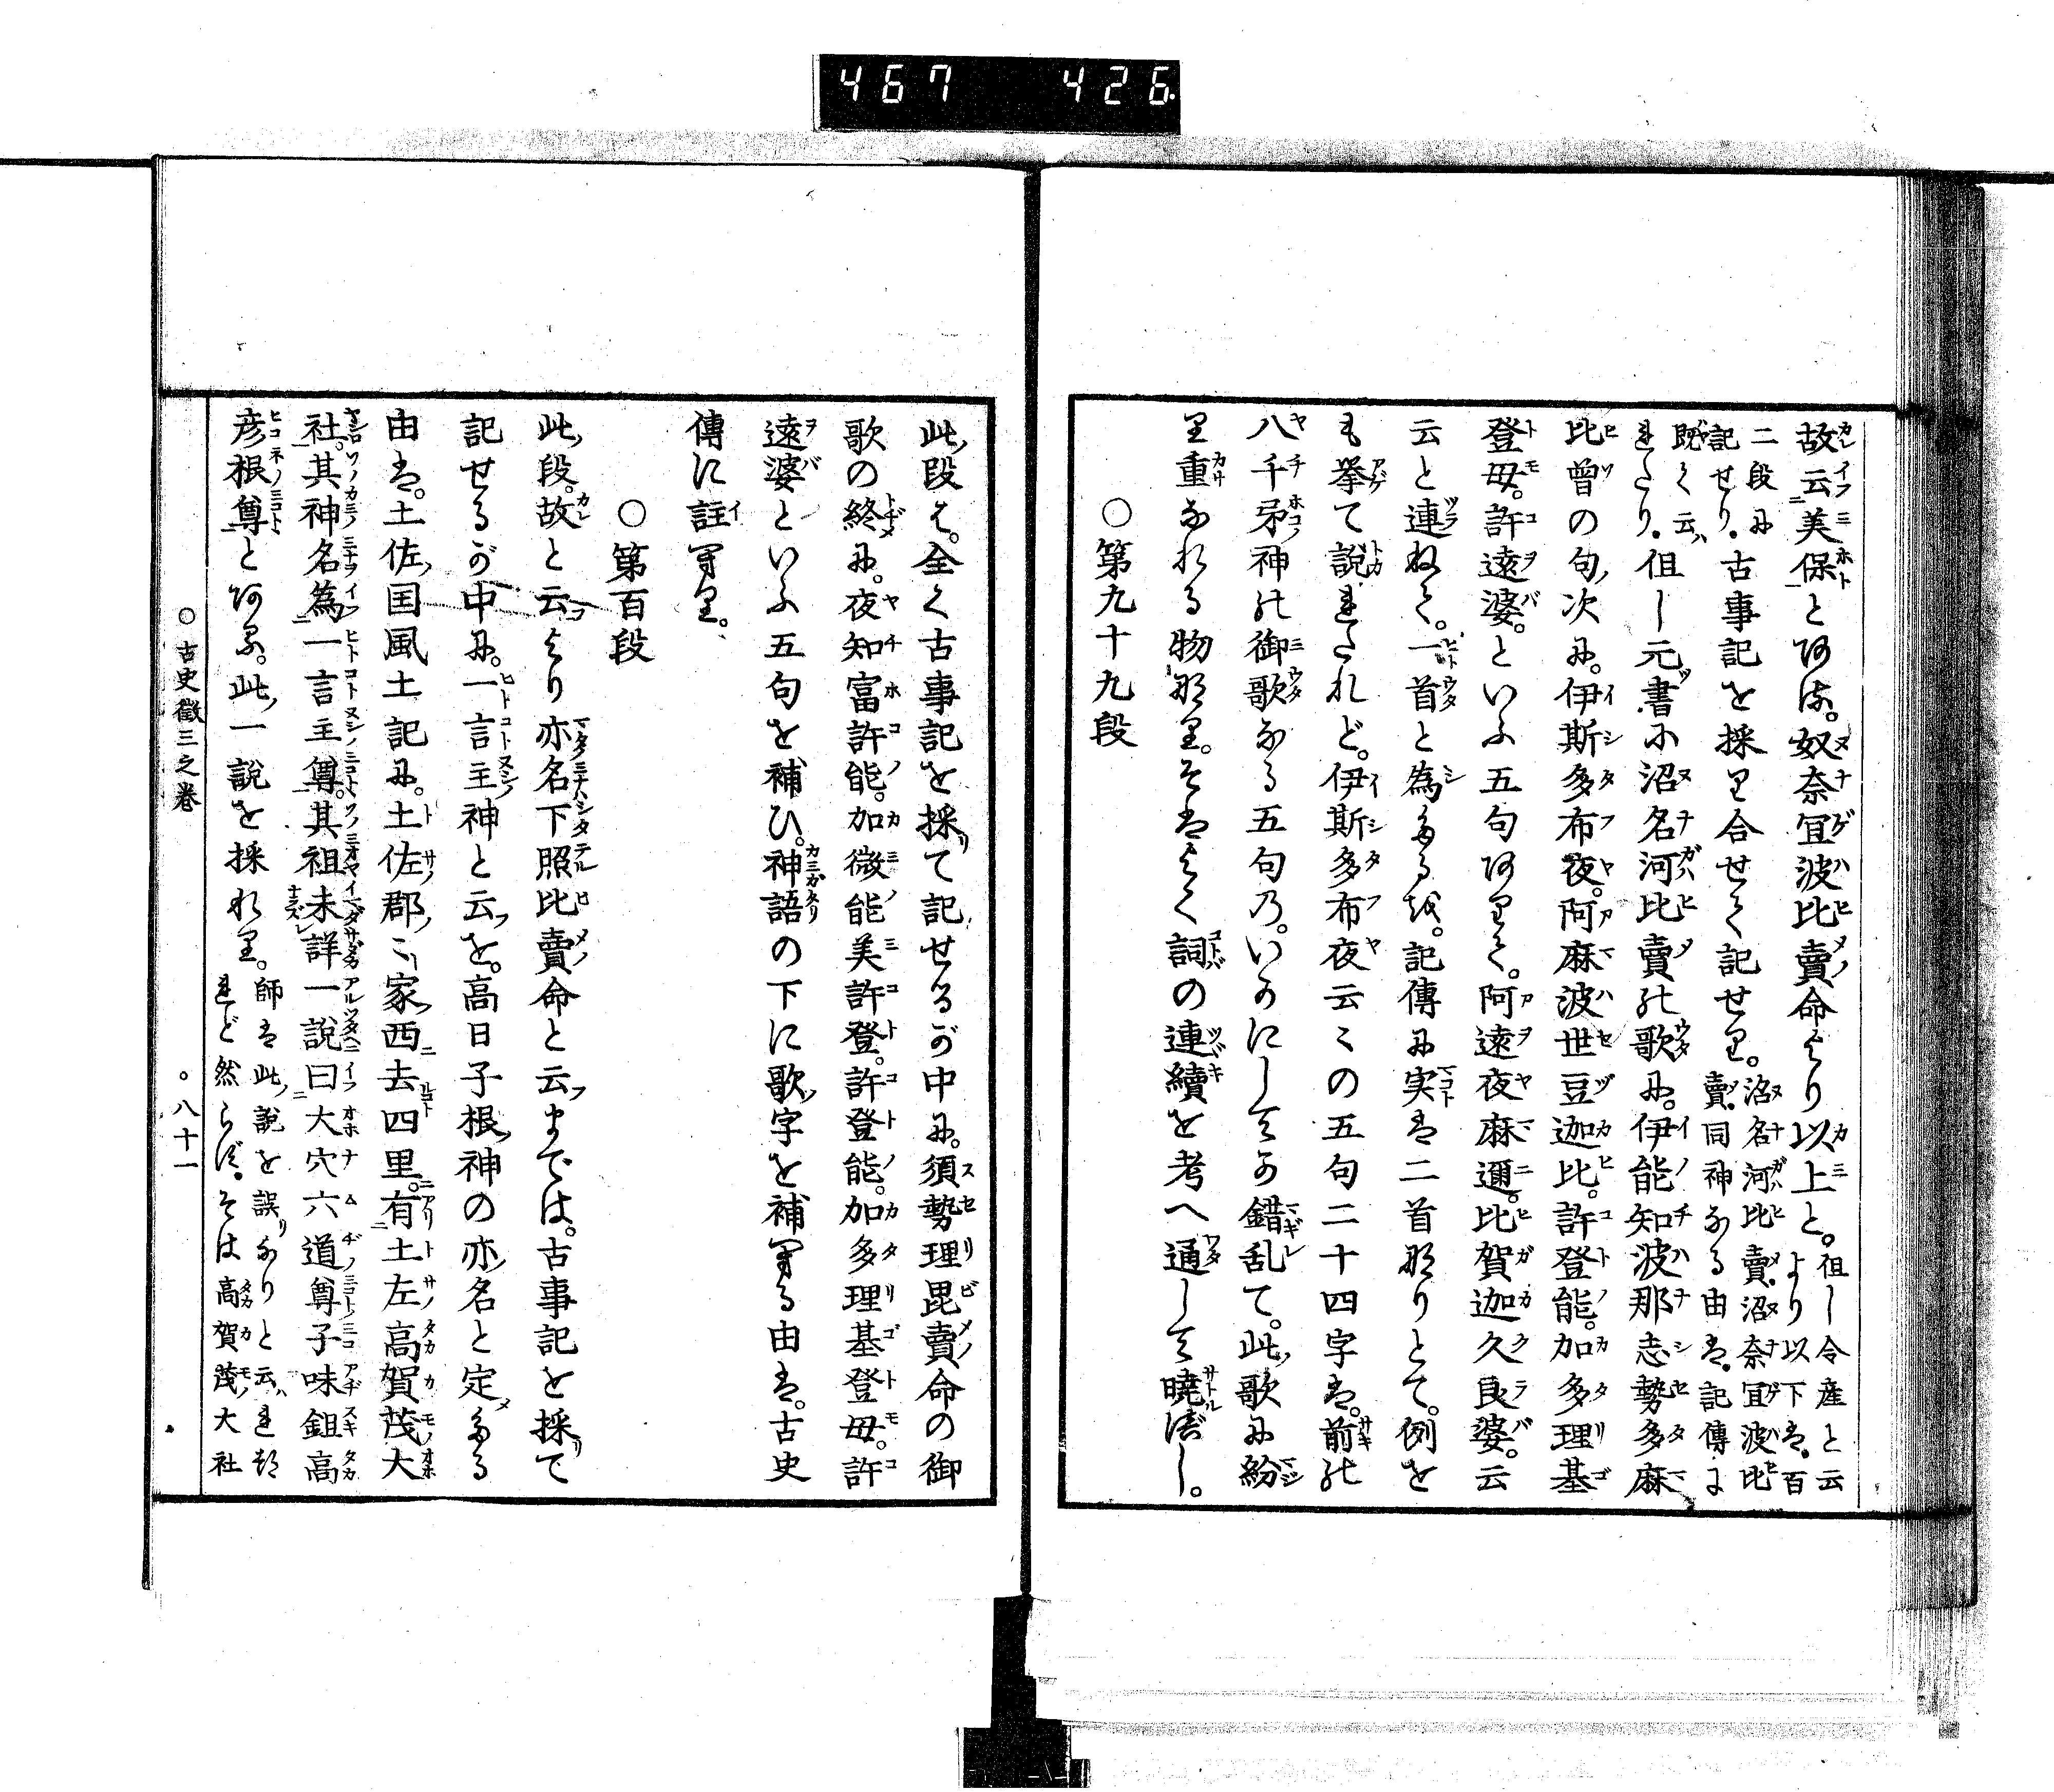 467 426
故云美保と阿は。奴奈宜波比賣命より以上と。但し令産と云より以下は。百
二段に記せり。古事記を採り合せて記せり。沼名河比賣。沼奈宜波比賣。同神なる由は。記傳に
既く云れたり。但し元書に沼名河比賣の歌に。伊能知波那志勢多麻
比曾の句次に。伊斯多布夜。阿麻波世豆迦比。許登能。加多理基
登母。許遠婆。といふ五句阿りて。阿遠夜麻邇。比賀迦久良婆。云
云と連ねて。一首と為たるを。記傳に実は二首なりとて。例を
も挙て説れたれど。伊斯多布夜云々の五句二十四字は。前の
八千矛神の御歌なる五句の。いかにしてか錯乱て。此歌に紛
り重なれる物なり。そはよく詞の連續を考へ通して曉べし。
○第九十九段
此段は。全く古事記を採て記せるが中に。須勢理毘賣命の御
歌の終に。夜知富許能。加微能美許登。許登能。加多理基登母。許
遠婆といふ五句を補ひ。神語の下に歌字を補へる由は。古史
傳に註へり。
○第百段
此段。故と云より亦名下照比賣命と云までは。古事記を採て
記せるが中に。一言主神と云を。高日子根神の亦名と定める
由は。土佐国風土記に。土佐郡々家西去四里。有土左高賀茂大
社。其神名為一言主尊。其祖未詳一說曰大穴六道尊子味鉏高
彦根尊と阿る。此一說を採れり。師は此說を誤なりと云れつれど然らず。そは高賀茂大社
○古史徵三之卷 ○八十一